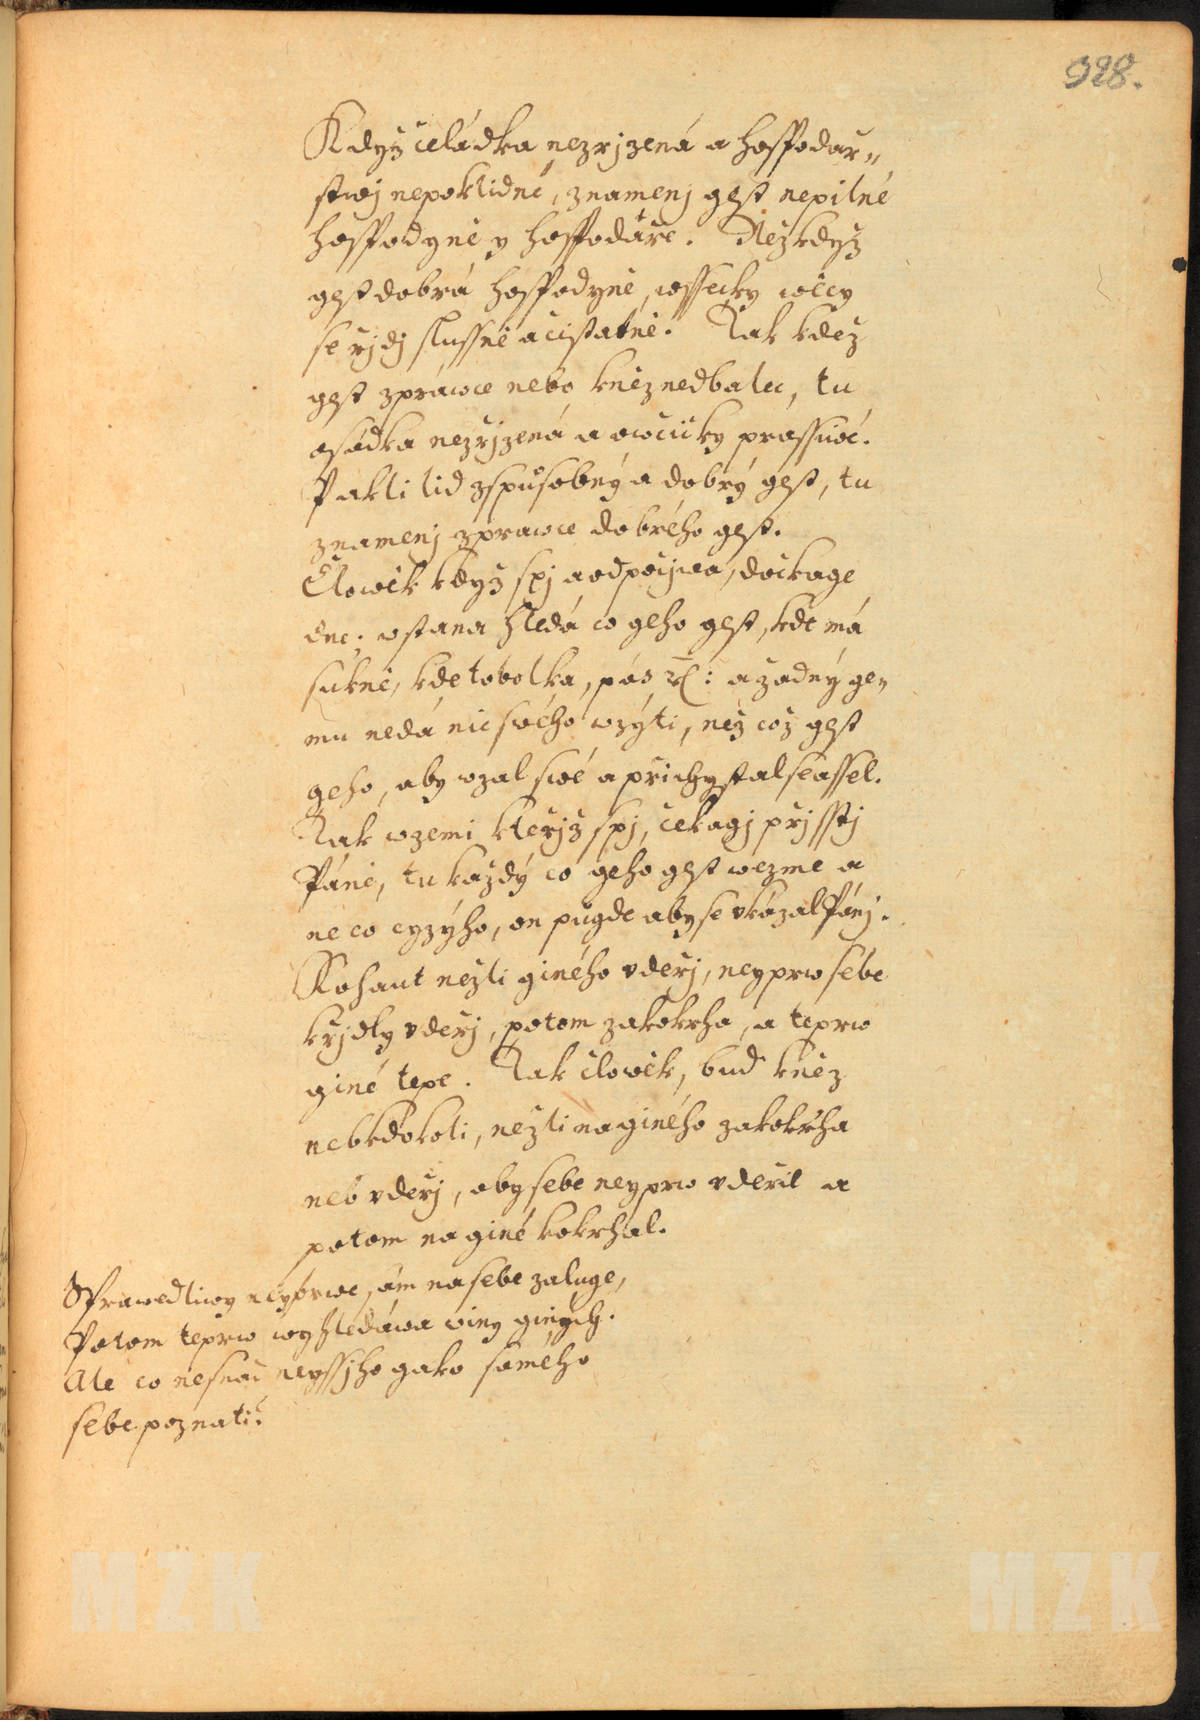 928.
Když čeládka nezřjzená a hospodař„
stwj nepoklidné, znamenj gest nepilné
hospodyně y hospodáře. Než když
gest dobrá hospodyně, wssecky wěcy
se řjdj slussně a čistatně. Tak kdež
gest zpráwce nebo kněz nedbalec, tu
osádka nezřjzená a owčičky prassiwé.
Pakli lid zspůsobný a dobrý gest, tu
znamenj zpráwce dobrého gest.
Člowěk když spj a odpočjwa, dočkage
dne, wstana hledá co geho gest, kde má
sukně, kde tobolka, pás ꝛc: a žádný ge„
mu nedá nic swého wzýti, než což gest
geho, aby wzal swé a přichystal se a ssel.
Tak w zemi kteřjž spj, čekagj přjsstj
Páně, tu každý co geho gest wezme a
ne co cyzýho, on půgde aby se vkázal Pánj.
Kohaut nežli giného vdeřj, neyprw sebe
křjdly vdeřj, potom zakokrha, a teprw
giné tepe. Tak člowěk, buď kněz
neb kdokoli, nežli na giného zakokrha
neb vdeřj, aby sebe neyprw vdeřil a
potom na giné kokrhal.
Sprawedliwy neyprwe sám na sebe žaluge,
Potom teprw wyhledáwa winy giných.
Ale co nesnadneyssjho gako samého
sebe poznati?
MZK
MZK